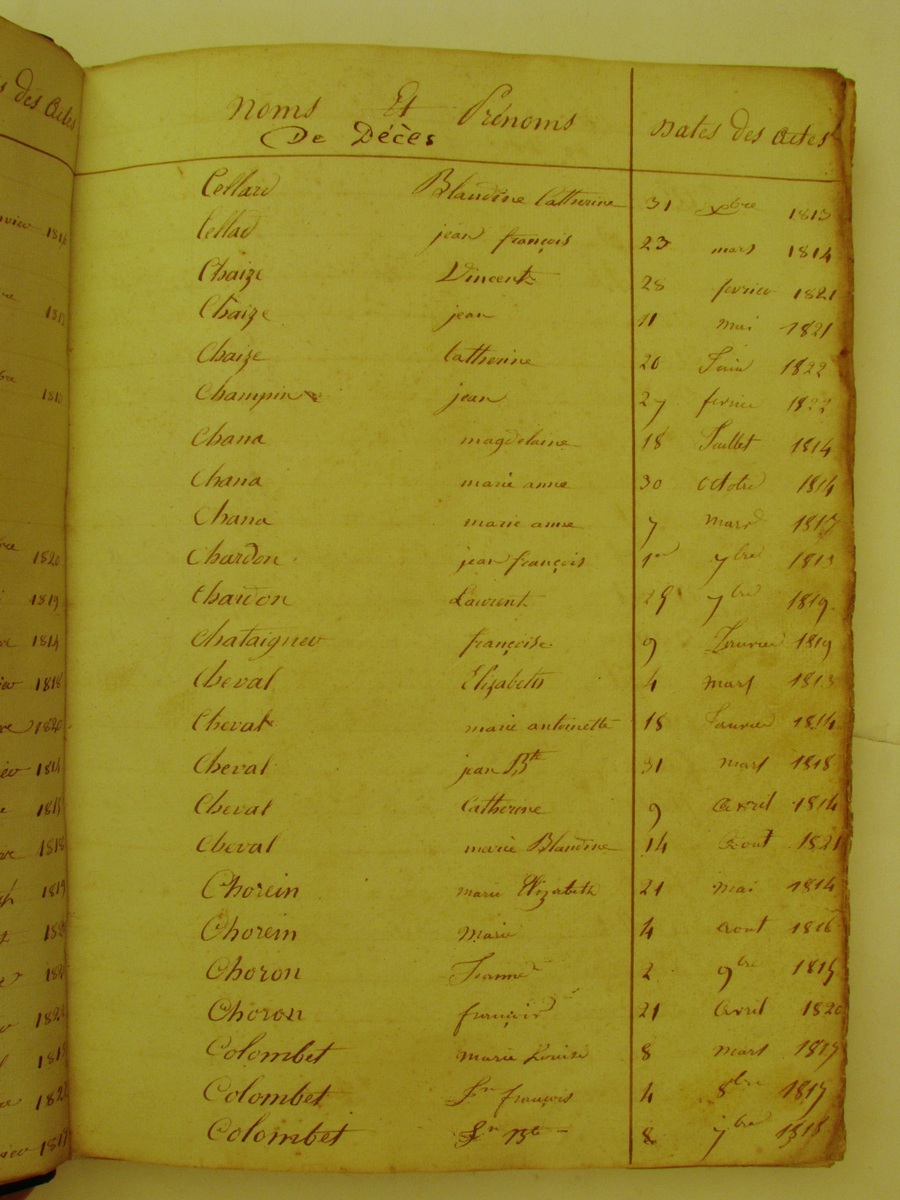 Noms Et Prénoms
De Décès
Dates des Actes
Cellard Blandine Catherine 31 xbre 1813
Cellard jean françois 23 mars 1814
Chaize Vincent 28 fevrier 1821
Chaize jean 11 mai 1821
Chaize Catherine 20 Juin 1822
Champin jean 27 fevrier 1822
Chana magdelaine 18 Juillet 1814
Chana marie anne 30 octobre 1814
Chana marie anne 7 mars 1817
Chardon jean françois 1er 7bre 1813
Chardon Laurent 29 7bre 1819
Chataigner françoise 9 Janvier 1819
Cheval Elizabeth 4 mars 1813
Cheval marie antoinette 18 Janvier 1814
Cheval jean Bte 31 mars 1818
Cheval Catherine 9 avril 1814
Cheval marie Blandine 14 Aout 1821
Chorein marie Elizabeth 21 mai 1814
Chorein Marie 4 aout 1816
Choron Jeanne 2 9bre 1815
Choron françois 21 Avril 1820
Colombet marie Louise 8 mars 1817
Colombet Jn françois 4 8bre 1817
Colombet Jn Bte 8 7bre 1818